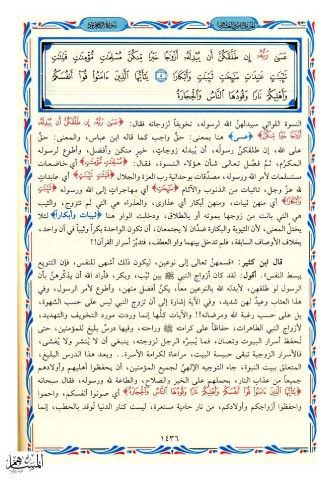 عَسَىٰ رَبُّهُۥٓ إِن طَلَّقَكُنَّ أَن يُبْدِلَهُۥٓ أَزْوَٰجًا خَيْرًا مِّنكُنَّ مُسْلِمَٰتٍ مُّؤْمِنَٰتٍ قَٰنِتَٰتٍ
تَٰٓئِبَٰتٍ عَٰبِدَٰتٍ سَٰٓئِحَٰتٍ ثَيِّبَٰتٍ وَأَبْكَارًا ٥ يَٰٓأَيُّهَا ٱلَّذِينَ ءَامَنُوا۟ قُوٓا۟ أَنفُسَكُمْ
وَأَهْلِيكُمْ نَارًا وَقُودُهَا ٱلنَّاسُ وَٱلْحِجَارَةُ
النسوة اللواتي سيبدلهنّ الله لرسوله، تخويفاً لزوجاته فقال: ﴿عَسَىٰ رَبُّهُ إِن طَلَّقَكُنَّ أَن يُبْدِلَهُ
أَزْوَاجًا خَيْرًا مِّنكُنَّ﴾ ﴿عسى﴾ هنا بمعنى: حقٌّ واجب كما قاله ابن عباس، والمعنى: حقٌّ
على الله، إن طلقكنَّ رسوله، أن يبدله زوجاتٍ، خيرٍ منكن وأفضل، وأطوع لرسوله
المكرَّم، ثم فصّل تعالى شأن هؤلاء النسوة، فقال: ﴿مُسْلِمَاتٍ مُّؤْمِنَاتٍ﴾ أي خاضعات
مستسلمات لأمر الله ورسوله، مصدّقات بوحدانية رب العزة والجلال ﴿قَانِتَاتٍ تَائِبَاتٍ﴾ أي عابداتٍ
لله عزّ وجل، تائباتٍ من الذنوب والآثام ﴿سَائِحَاتٍ﴾ أي مهاجراتٍ إلى الله ورسوله ﴿ثَيِّبَاتٍ
وَأَبْكَارًا﴾ أي منهن ثيبات، ومنهن أبكار أي عذارى، والعذراء هي التي لم تتزوج، والثيب
هي التي بانت من زوجها بموته أو بالطلاق، ودخلت الواو هنا ﴿ثيبات وأبكاراً﴾ لئلا
يختلَّ المعنى، لأن الثيوبة والبكارة ضدَّان لا يجتمعان، أن تكون الواحدة بكراً وثيباً في آن واحد،
بخلاف الأوصاف السابقة، فلم تدخل بينهما واو العطف، فتدبَّر أسرار القرآن!!
قال ابن كثير: «قسمهنَّ تعالى إلى نوعين، ليكون ذلك أشهى للنفس، فإن التنويع
يبسط النفس». أقول: لقد كان أزواج النبي ﷺ بين ثيِّب، وبكر، فأراد الله أن يذكّرهنَّ بأن
الرسول لو طلقهن، لأبدله الله بالنوعين معاً، يكنَّ أفضل منهن، وأطوع لأمر الرسول، وفي
هذا العتاب وعيدٌ لهن شديد، وفي الآية إشارة إلى أن تزوج النبي ليس على حسب الشهوة،
بل على حسب رغبة الله ومرضاته!! والآيات كلُّها إنما وردت مورد التخويف والتهديد،
لأزواج النبي الطاهرات، حفاظاً على كرامته ﷺ وراحته، وفيها درسٌ بليغ للمؤمنين، حتى
تُحفظ أسرار البيوت وتصان، فما يُسِرُّه الرجل لزوجته، ينبغي أن لا يُنشر ولا يُفشى،
فالأسرار الزوجية تبقى حبيسة البيت، مراعاة لكرامة الأسرة.. وبعد هذا الدرس البليغ،
المتعلق ببيت النبوة، جاء التوجيه الإلهيُّ لجميع المؤمنين، أن يحفظوا أهليهم وأولادهم
جميعاً من عذاب النار، بحملهم على الخير والصلاح، والطاعة لله ورسوله، فقال سبحانه
﴿يَا أَيُّهَا الَّذِينَ آمَنُوا قُوا أَنفُسَكُمْ وَأَهْلِيكُمْ نَارًا وَقُودُهَا النَّاسُ وَالْحِجَارَةُ﴾ أي صونوا أنفسكم، واحموا
واحفظوا أزواجكم وأولادكم، من نار حامية مستعرة، ليست كنار الدنيا تُوقد بالحطب، إنما
١٤٣٦